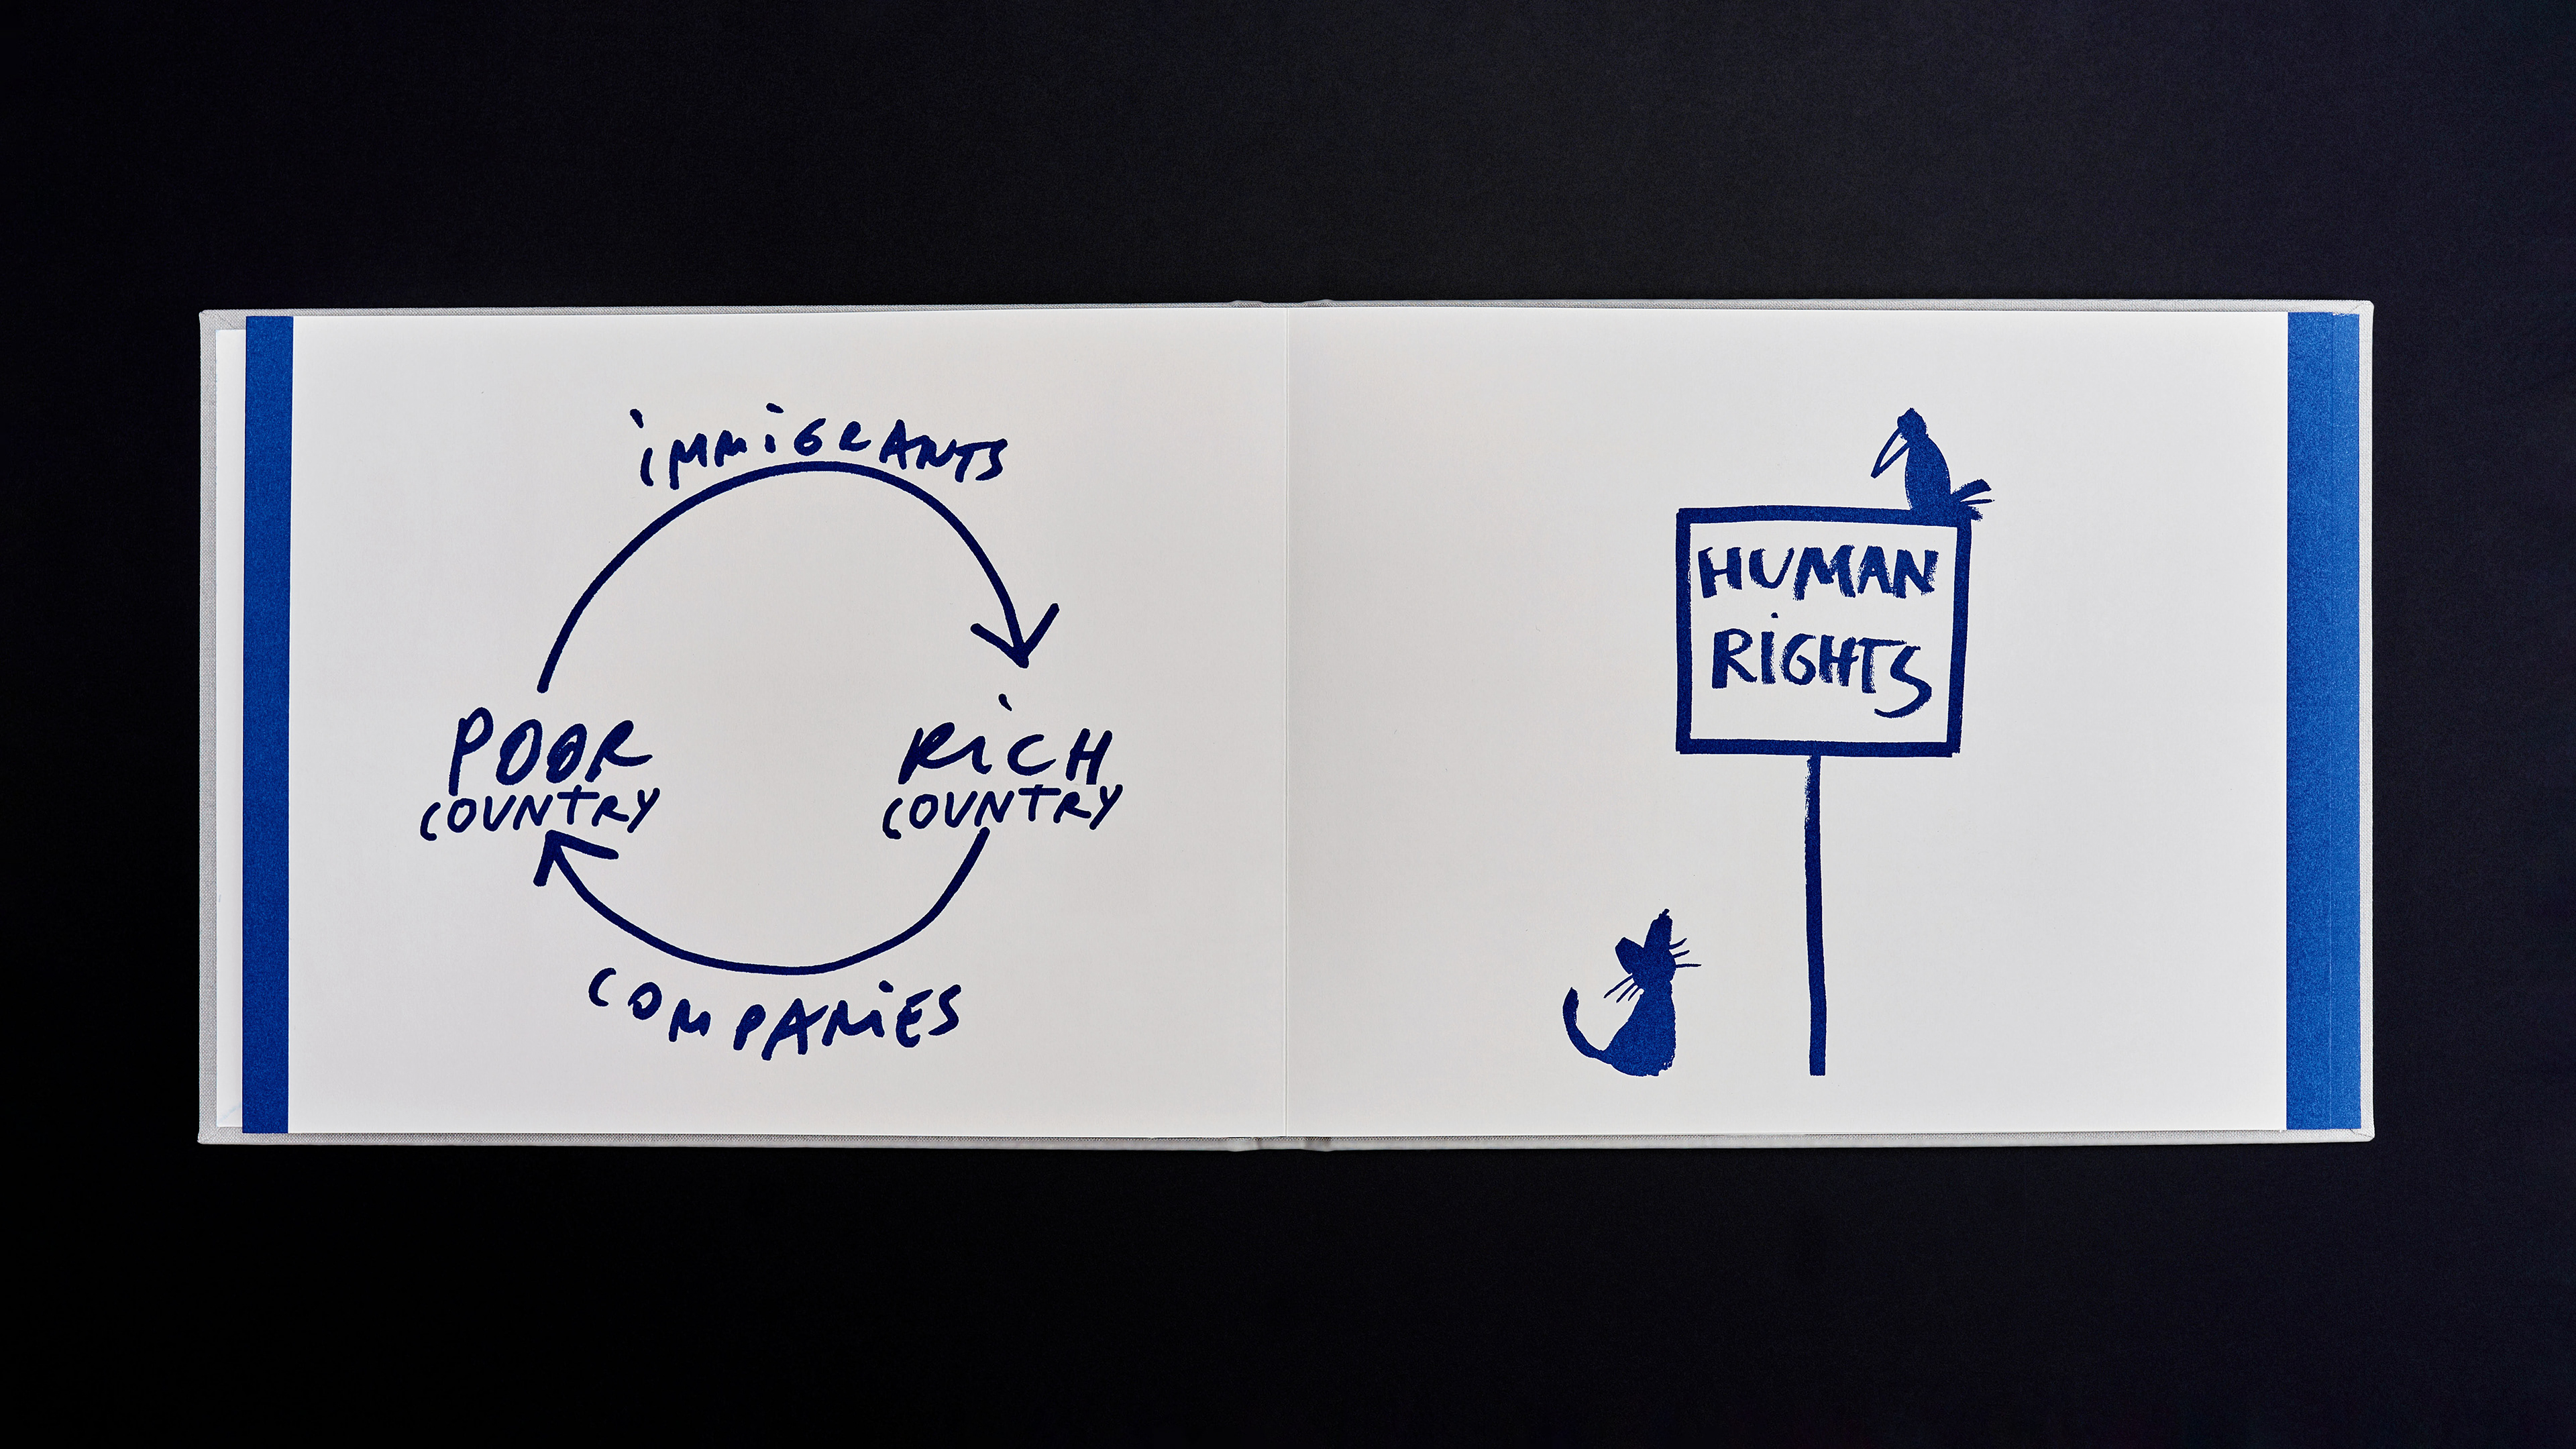 iMMiGRANTS
POOR
COUNTRY
RiCH
COUNTRY
COMPANiES
HUMAN
RiGHTS